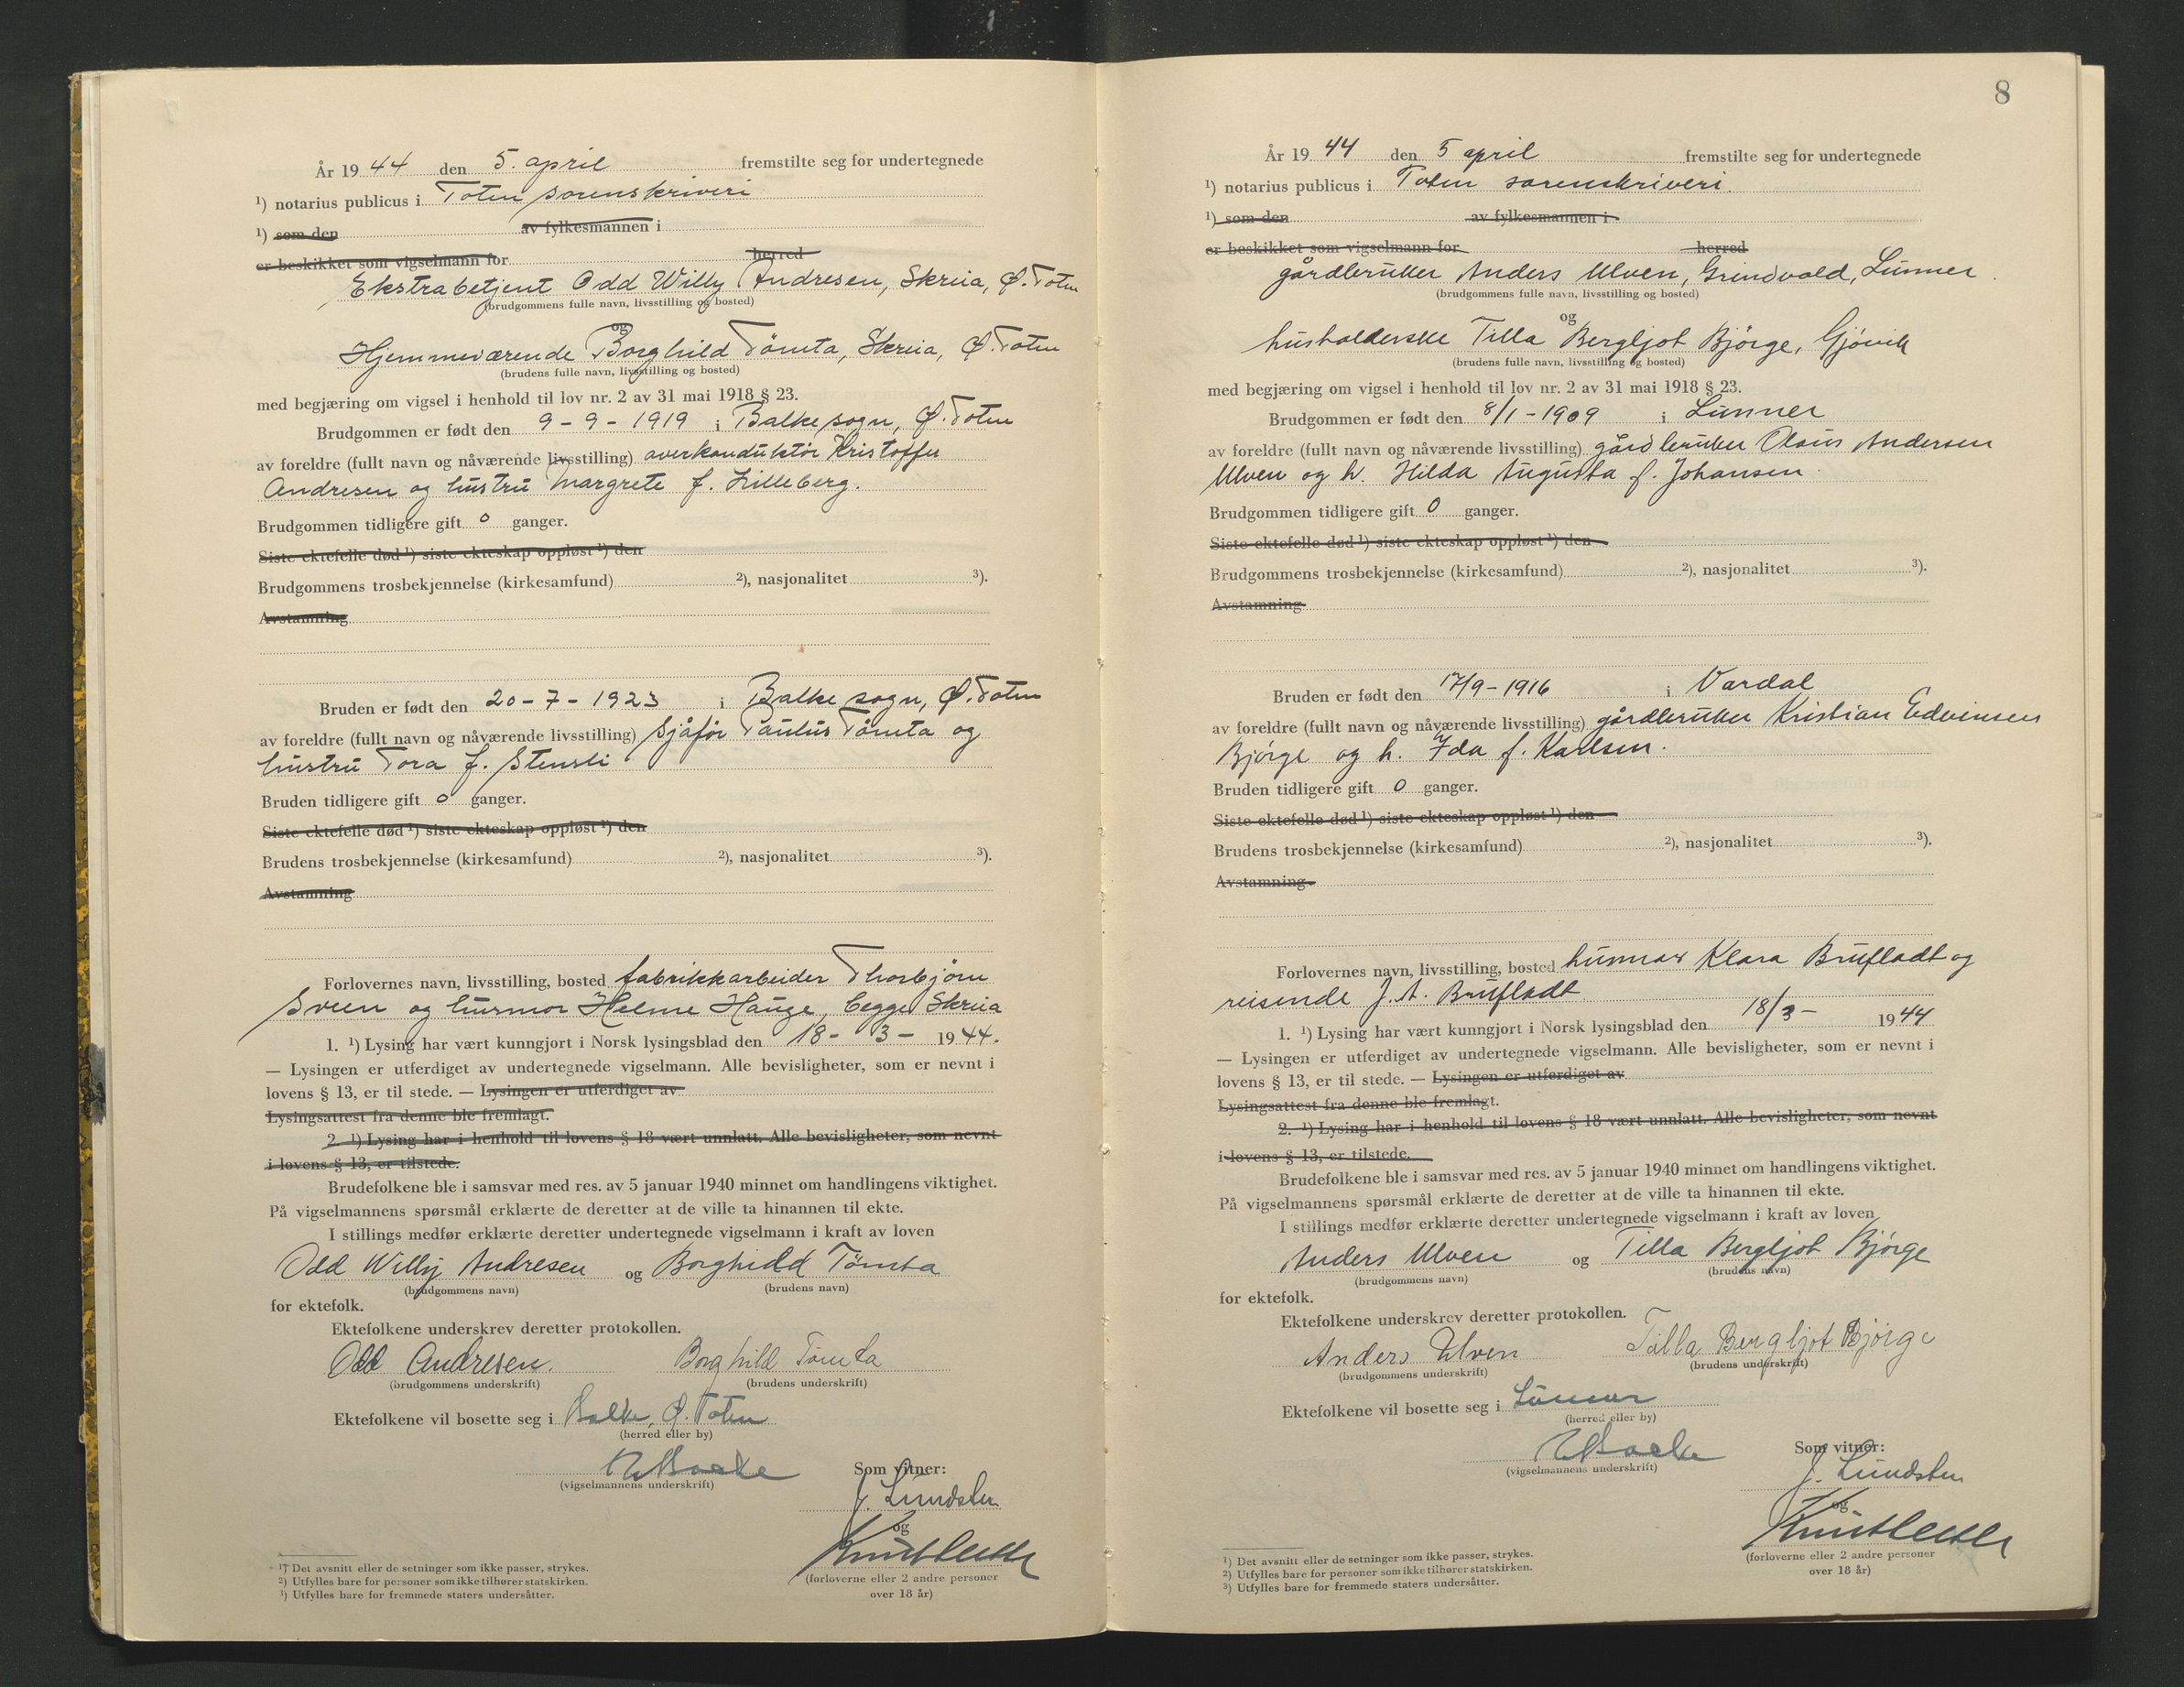 År 1944 den 5. april fremstilte seg for undertegnede
¹) notarius publicus i Toten sorenskriveri
¹) som den av fylkesmannen i
er beskikket som vigselmann for herred
Ekstrabetjent Odd Willy Andresen, Skreia, Ø. Toten
(brudgommens fulle navn, livsstilling og bosted)
og
Hjemmeværende Borghild Tömta, Skreia, Ø. Toten
(brudens fulle navn, livsstilling og bosted)
med begjæring om vigsel i henhold til lov nr. 2 av 31 mai 1918 § 23.
Brudgommen er født den 9 - 9 - 1919 i Balke sogn, Ø. Toten
av foreldre (fullt navn og nåværende livsstilling) overkonduktör Kristoffer
Andresen og hustru Margrete f. Lilleberg.
Brudgommen tidligere gift 0 ganger.
Siste ektefelle død ¹) siste ekteskap oppløst ¹) den
Brudgommens trosbekjennelse (kirkesamfund) ²), nasjonalitet ³).
Avstamning
Bruden er født den 20 - 7 - 1923 i Balke sogn, Ø. Toten
av foreldre (fullt navn og nåværende livsstilling) Sjåför Paulus Tömta og
hustru Tora f. Stensli
Bruden tidligere gift 0 ganger.
Siste ektefelle død ¹) siste ekteskap oppløst ¹) den
Brudens trosbekjennelse (kirkesamfund) ²), nasjonalitet ³).
Avstamning
Forlovernes navn, livsstilling, bosted fabrikkarbeider Thorbjörn
Sveen og husmor Helme Hauge, begge Skreia
1. ¹) Lysing har vært kunngjort i Norsk lysingsblad den 18 - 3 - 1944.
— Lysingen er utferdiget av undertegnede vigselmann. Alle bevisligheter, som er nevnt i
lovens § 13, er til stede. — Lysingen er utferdiget av
Lysingsattest fra denne ble fremlagt.
2. ¹) Lysing har i henhold til lovens § 18 vært unnlatt. Alle bevisligheter, som nevnt
i lovens § 13, er tilstede.
Brudefolkene ble i samsvar med res. av 5 januar 1940 minnet om handlingens viktighet.
På vigselmannens spørsmål erklærte de deretter at de ville ta hinannen til ekte.
I stillings medfør erklærte deretter undertegnede vigselmann i kraft av loven
Odd Willy Andresen og Borghild Tömta
(brudgommens navn) (brudens navn)
for ektefolk.
Ektefolkene underskrev deretter protokollen.
Odd Andresen. Borghild Tømta
(brudgommens underskrift) (brudens underskrift)
Ektefolkene vil bosette seg i Balke, Ø. Toten
(herred eller by)
(vigselmannens underskrift)
Som vitner:
J. Lundsten
og
(forloverne eller 2 andre personer
over 18 år)
¹) Det avsnitt eller de setninger som ikke passer, strykes.
²) Utfylles bare for personer som ikke tilhører statskirken.
³) Utfylles bare for fremmede staters undersåtter.
8
År 1944 den 5 april fremstilte seg for undertegnede
¹) notarius publicus i Toten sorenskriveri.
¹) som den av fylkesmannen i
er beskikket som vigselmann for herred
gårdbruker Anders Ulven, Grindvold, Lunner.
(brudgommens fulle navn, livsstilling og bosted)
og
husholderske Tilla Bergljot Bjørge, Gjøvik
(brudens fulle navn, livsstilling og bosted)
med begjæring om vigsel i henhold til lov nr. 2 av 31 mai 1918 § 23.
Brudgommen er født den 8/1 - 1909 i Lunner
av foreldre (fullt navn og nåværende livsstilling) gårdbruker Olaus Andersen
Ulven og h. Hilda Augusta f. Johansen.
Brudgommen tidligere gift 0 ganger.
Siste ektefelle død ¹) siste ekteskap oppløst ¹) den
Brudgommens trosbekjennelse (kirkesamfund) ²), nasjonalitet ³).
Avstamning
Bruden er født den 17/9 - 1916 i Vardal
av foreldre (fullt navn og nåværende livsstilling) gårdbruker Kristian Edvinsen
Bjørge og h. Ida f. Karlsen.
Bruden tidligere gift 0 ganger.
Siste ektefelle død ¹) siste ekteskap oppløst ¹) den
Brudens trosbekjennelse (kirkesamfund) ²), nasjonalitet ³).
Avstamning
Forlovernes navn, livsstilling, bosted husmor Klara Brufladt og
reisende J. A. Brufladt
1. ¹) Lysing har vært kunngjort i Norsk lysingsblad den 18/3 - 1944
— Lysingen er utferdiget av undertegnede vigselmann. Alle bevisligheter, som er nevnt i
lovens § 13, er til stede. — Lysingen er utferdiget av
Lysingsattest fra denne ble fremlagt.
2. ¹) Lysing har i henhold til lovens § 18 vært unnlatt. Alle bevisligheter, som nevnt
i lovens § 13, er tilstede.
Brudefolkene ble i samsvar med res. av 5 januar 1940 minnet om handlingens viktighet.
På vigselmannens spørsmål erklærte de deretter at de ville ta hinannen til ekte.
I stillings medfør erklærte deretter undertegnede vigselmann i kraft av loven
Anders Ulven og Tilla Bergljot Bjørge
(brudgommens navn) (brudens navn)
for ektefolk.
Ektefolkene underskrev deretter protokollen.
Anders Ulven Tilla Bergljot Bjørge
(brudgommens underskrift) (brudens underskrift)
Ektefolkene vil bosette seg i Lunner
(herred eller by)
(vigselmannens underskrift)
Som vitner:
J. Lundsten
og
(forloverne eller 2 andre personer
over 18 år)
¹) Det avsnitt eller de setninger som ikke passer, strykes.
²) Utfylles bare for personer som ikke tilhører statskirken.
³) Utfylles bare for fremmede staters undersåtter.